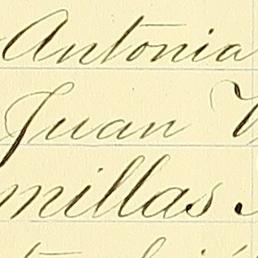 Antonia
Juan
millas